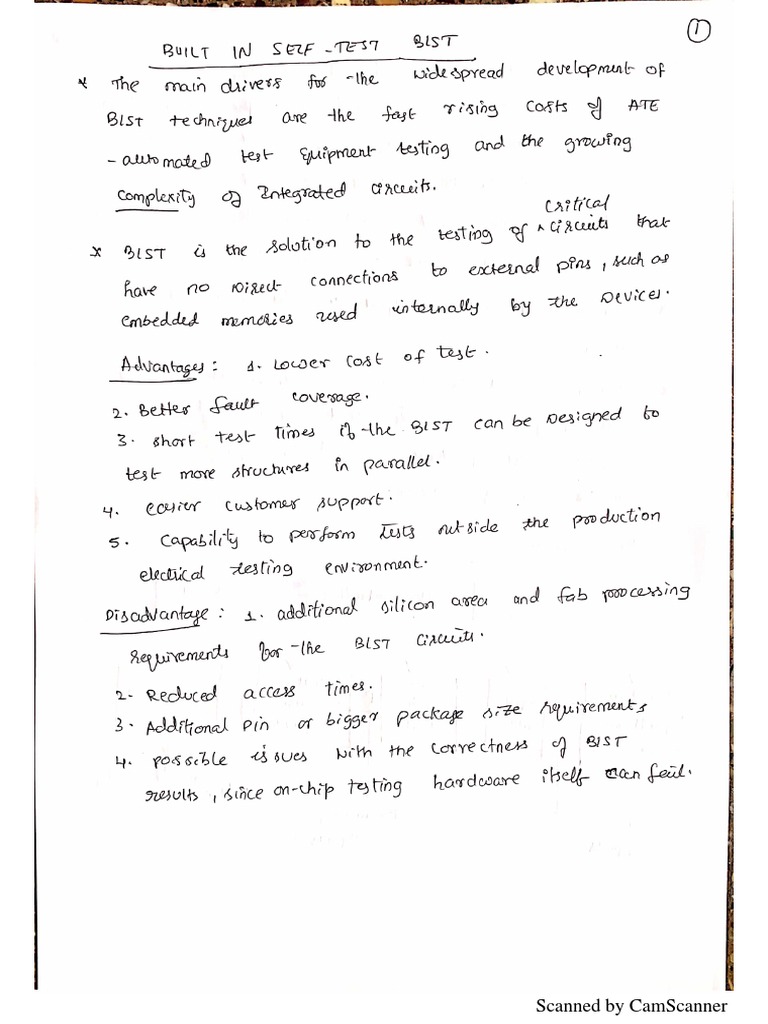 1
BUILT IN SELF-TEST BIST
* The main drivers for the widespread development of
BIST techniques are the fast rising costs of ATE
- automated test Equipment testing and the growing
complexity of Integrated circuits.
critical
* BIST is the solution to the testing of ^ circuits that
have no Direct connections to external pins, such as
embedded memories used internally by the Devices.
Advantages : 1. Lower cost of test.
2. Better fault coverage.
3. short test times if the BIST can be Designed to
test more structures in parallel.
4. easier customer support.
5. capability to perform tests outside the production
electrical testing environment.
Disadvantage : 1. additional silicon area and fab processing
requirements for the BIST circuits.
2- Reduced access times.
3. Additional pin or bigger package size requirements
4. possible issues with the correctness of BIST
results, since on-chip testing hardware itself can fail.
Scanned by CamScanner